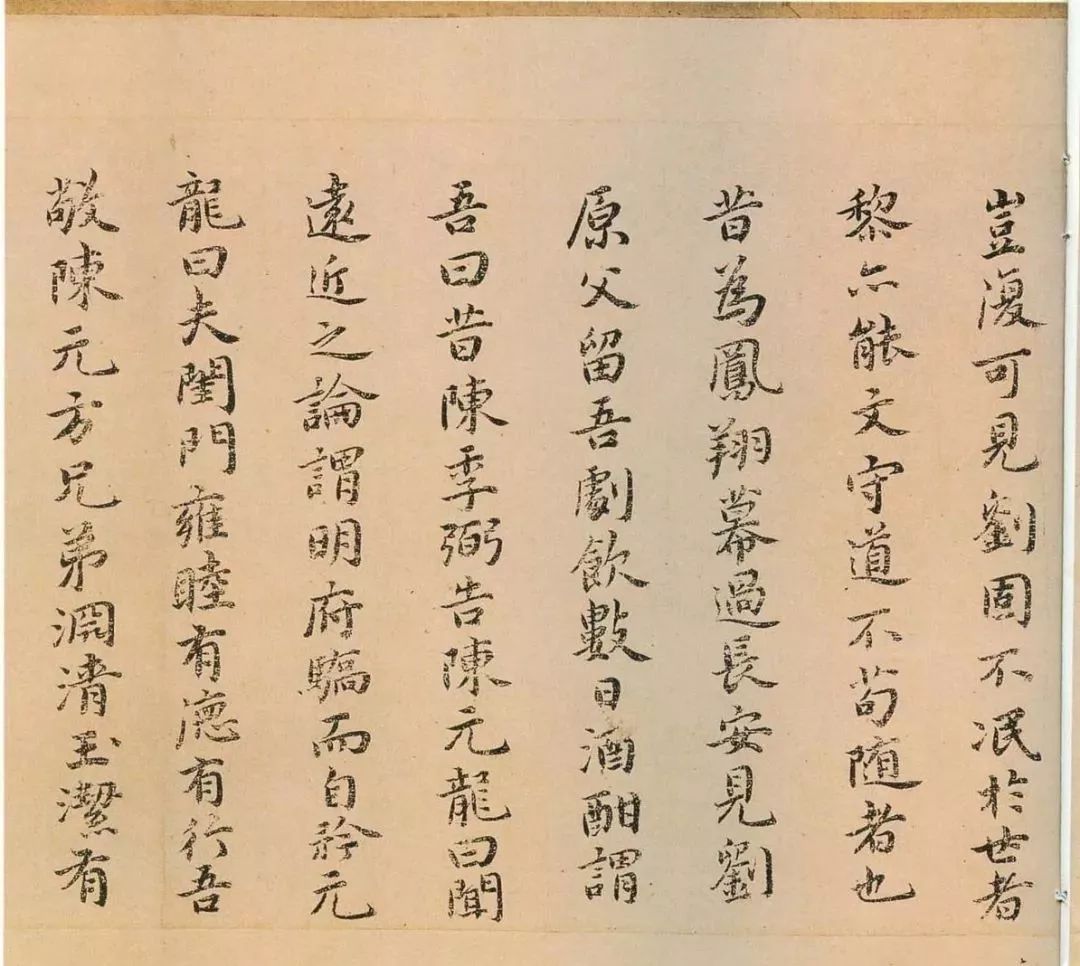 豈復可見劉固不泯於世者
黎亦能文守道不苟随者也
昔為鳳翔幕過長安見劉
原父留吾劇飲數日酒酣謂
吾曰昔陳季弼告陳元龍曰聞
遠近之論謂明府驕而自矜元
龍曰夫閨門雍睦有德有行吾
敬陳元方兄弟淵清玉潔有